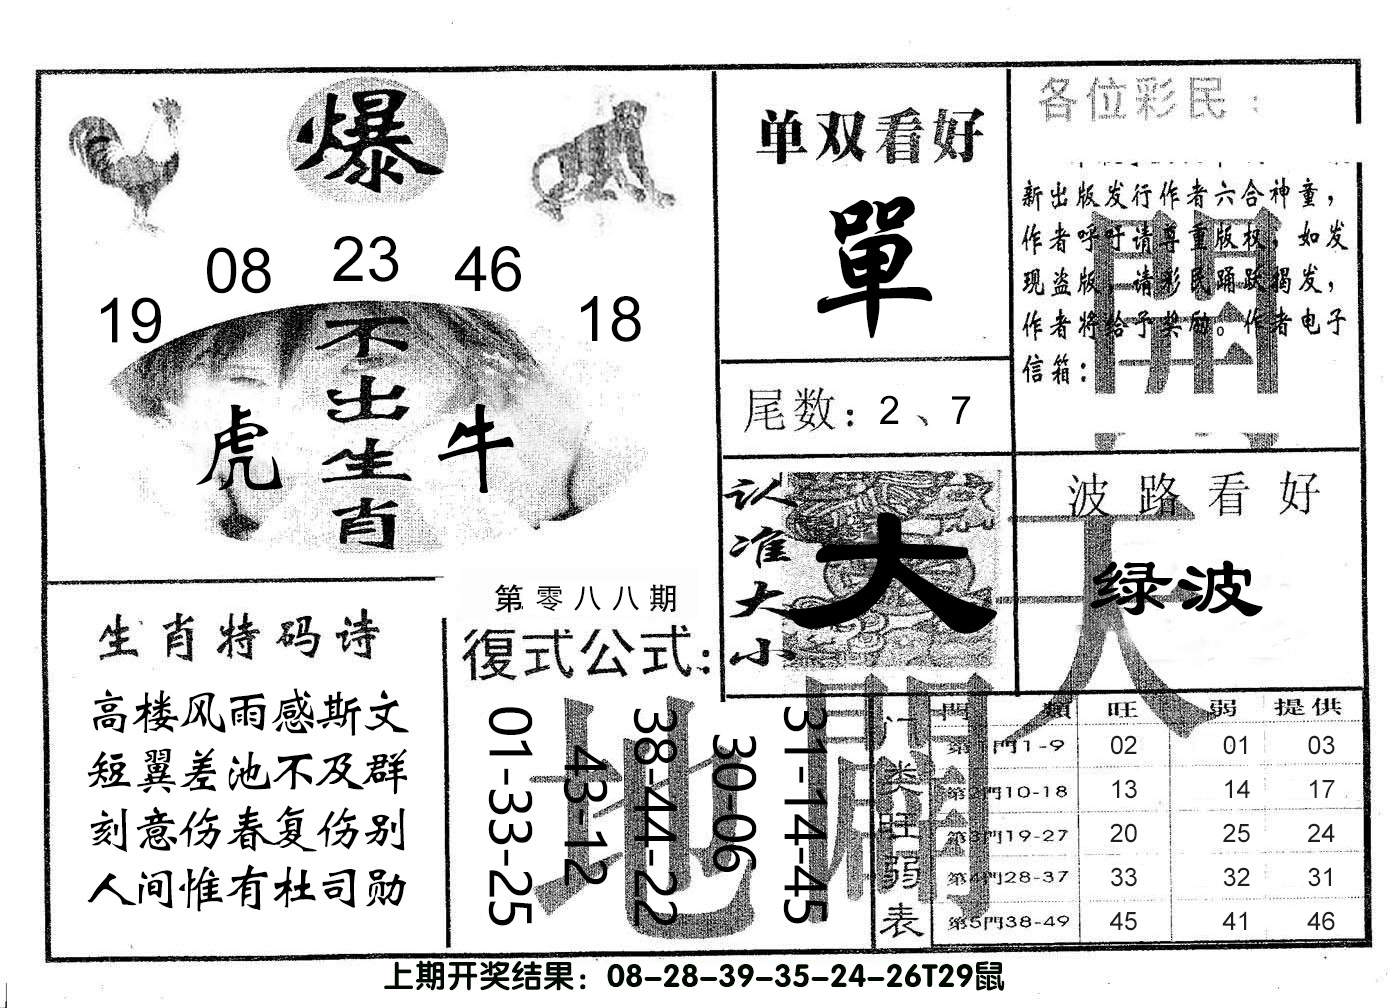 爆
19 08 23 46 18
不出生肖
虎 牛
生肖特码诗
高楼风雨感斯文
短翼差池不及群
刻意伤春复伤别
人间惟有杜司勋
第零八八期
復式公式：
01-33-25
43-12
38-44-22
30-06
31-14-45
单双看好
單
尾数：2、7
认准大小
大
各位彩民：
新出版发行作者六合神童，
作者呼吁请尊重版权，如发
现盗版，请彩民踊跃揭发，
作者将给予奖励。作者电子
信箱：
波路看好
绿波
天地
门类旺弱表
門類 旺 弱 提供
第1門1-9 02 01 03
第2門10-18 13 14 17
第3門19-27 20 25 24
第4門28-37 33 32 31
第5門38-49 45 41 46
上期开奖结果：08-28-39-35-24-26T29鼠